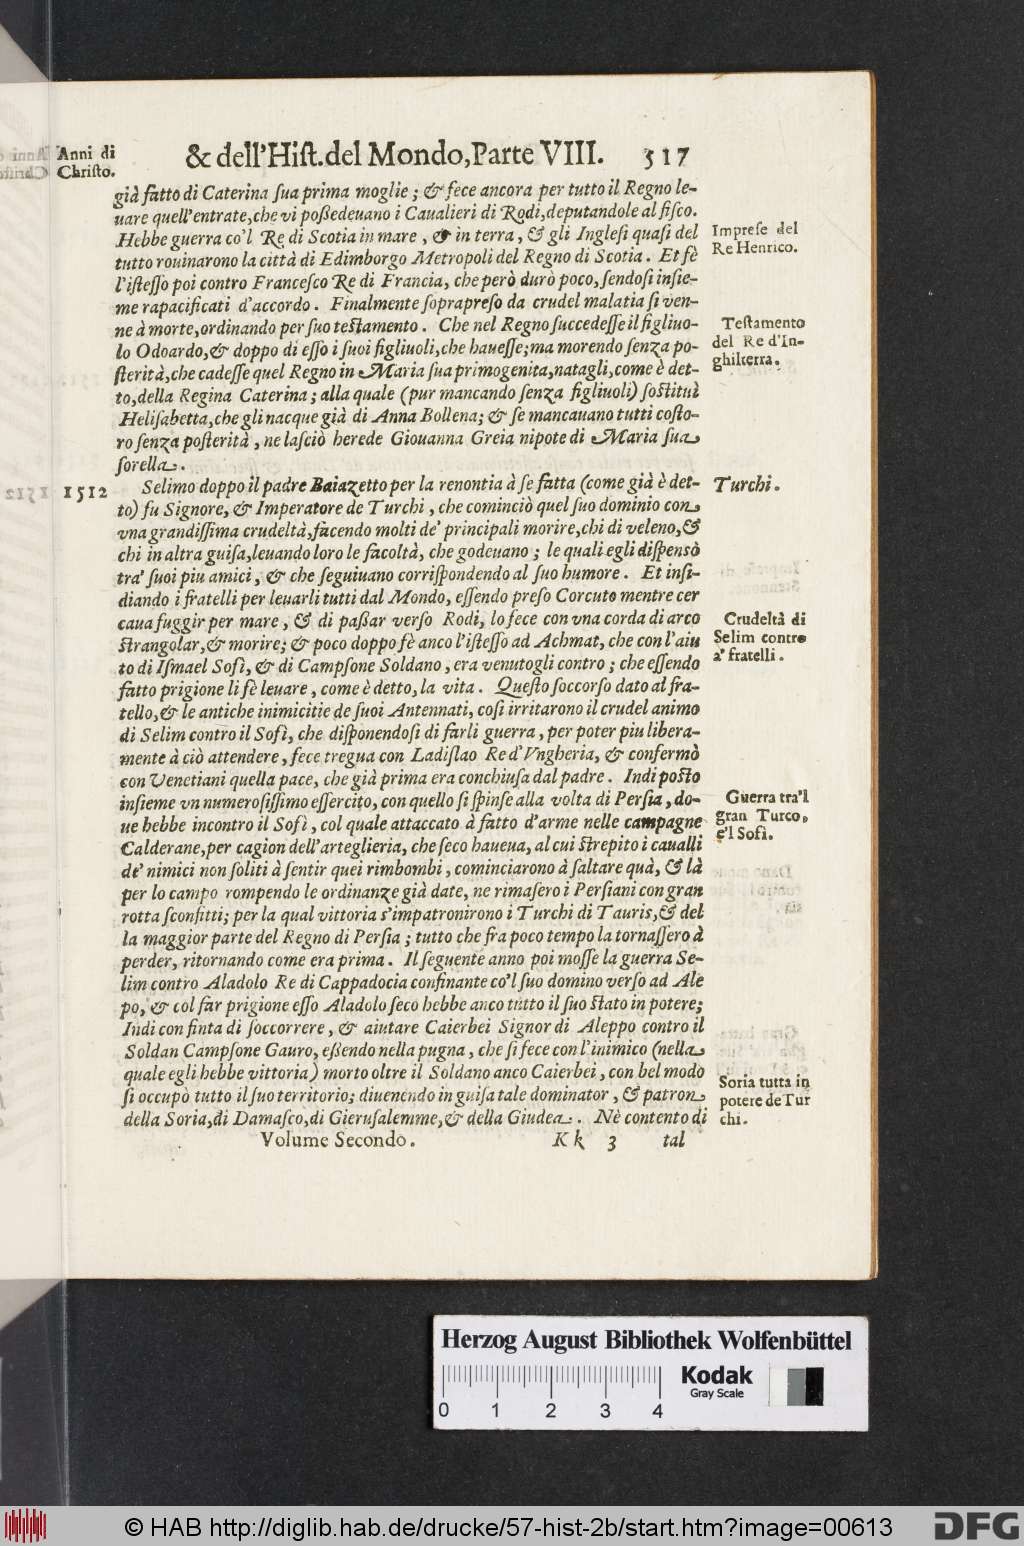 Anni di
Christo.
& dell'Hiſt. del Mondo, Parte VIII. 517
già fatto di Caterina ſua prima moglie; & fece ancora per tutto il Regno le-
uare quell'entrate, che vi poßedeuano i Caualieri di Rodi, deputandole al fiſco.
Hebbe guerra co'l Re di Scotia in mare, & in terra, & gli Ingleſi quaſi del
tutto rouinarono la città di Edimborgo Metropoli del Regno di Scotia. Et fè
l'iſteſſo poi contro Franceſco Re di Francia, che però durò poco, ſendoſi inſie-
me rapacificati d'accordo. Finalmente ſoprapreſo da crudel malatia ſi ven-
ne à morte, ordinando per ſuo teſtamento. Che nel Regno ſuccedeſſe il figliuo-
lo Odoardo, & doppo di eſſo i ſuoi figliuoli, che haueſſe; ma morendo ſenza po-
ſterità, che cadeſſe quel Regno in Maria ſua primogenita, natagli, come è det-
to, della Regina Caterina; alla quale (pur mancando ſenza figliuoli) ſoſtituì
Heliſabetta, che gli nacque già di Anna Bollena; & ſe mancauano tutti coſto-
ro ſenza poſterità, ne laſciò herede Giouanna Greia nipote di Maria ſua
ſorella.
Impreſe del
Re Henrico.
Teſtamento
del Re d'In-
ghilterra.
1512
Selimo doppo il padre Baiazetto per la renontia à ſe fatta (come già è det-
to) fu Signore, & Imperatore de Turchi, che cominciò quel ſuo dominio con
vna grandiſſima crudeltà, facendo molti de' principali morire, chi di veleno, &
chi in altra guiſa, leuando loro le facoltà, che godeuano; le quali egli diſpensò
tra' ſuoi piu amici, & che ſeguiuano corriſpondendo al ſuo humore. Et inſi-
diando i fratelli per leuarli tutti dal Mondo, eſſendo preſo Corcuto mentre cer
caua fuggir per mare, & di paßar verſo Rodi, lo fece con vna corda di arco
ſtrangolar, & morire; & poco doppo fè anco l'iſteſſo ad Achmat, che con l'aiu
to di Iſmael Sofì, & di Campſone Soldano, era venutogli contro; che eſſendo
fatto prigione li fè leuare, come è detto, la vita. Queſto ſoccorſo dato al fra-
tello, & le antiche inimicitie de ſuoi Antennati, coſi irritarono il crudel animo
di Selim contro il Sofì, che diſponendoſi di farli guerra, per poter piu libera-
mente à ciò attendere, fece tregua con Ladiſlao Re d'Vngheria, & confermò
con Venetiani quella pace, che già prima era conchiuſa dal padre. Indi poſto
inſieme vn numeroſiſſimo eſſercito, con quello ſi ſpinſe alla volta di Perſia, do-
ue hebbe incontro il Sofì, col quale attaccato à fatto d'arme nelle campagne
Calderane, per cagion dell'arteglieria, che ſeco haueua, al cui ſtrepito i caualli
de' nimici non ſoliti à ſentir quei rimbombi, cominciarono à ſaltare quà, & là
per lo campo rompendo le ordinanze già date, ne rimaſero i Perſiani con gran
rotta ſconfitti; per la qual vittoria s'impatronirono i Turchi di Tauris, & del
la maggior parte del Regno di Perſia; tutto che fra poco tempo la tornaſſero à
perder, ritornando come era prima. Il ſeguente anno poi moſſe la guerra Se-
lim contro Aladolo Re di Cappadocia confinante co'l ſuo domino verſo ad Ale
po, & col far prigione eſſo Aladolo ſeco hebbe anco tutto il ſuo ſtato in potere;
Indi con finta di ſoccorrere, & aiutare Caierbei Signor di Aleppo contro il
Soldan Campſone Gauro, eßendo nella pugna, che ſi fece con l'inimico (nella
quale egli hebbe vittoria) morto oltre il Soldano anco Caierbei, con bel modo
ſi occupò tutto il ſuo territorio; diuenendo in guiſa tale dominator, & patron
della Soria, di Damaſco, di Gieruſalemme, & della Giudea. Nè contento di
Turchi.
Crudeltà di
Selim contro
a' fratelli.
Guerra tra'l
gran Turco,
e'l Sofì.
Soria tutta in
potere de Tur
chi.
Volume Secondo. Kk 3 tal
Herzog August Bibliothek Wolfenbüttel
Kodak
Gray Scale
0 1 2 3 4
© HAB http://diglib.hab.de/drucke/57-hist-2b/start.htm?image=00613
DFG